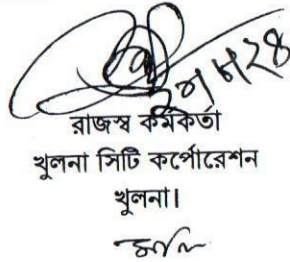 রাজস্ব কর্মকর্তা
খুলনা সিটি কর্পোরেশন
খুলনা।